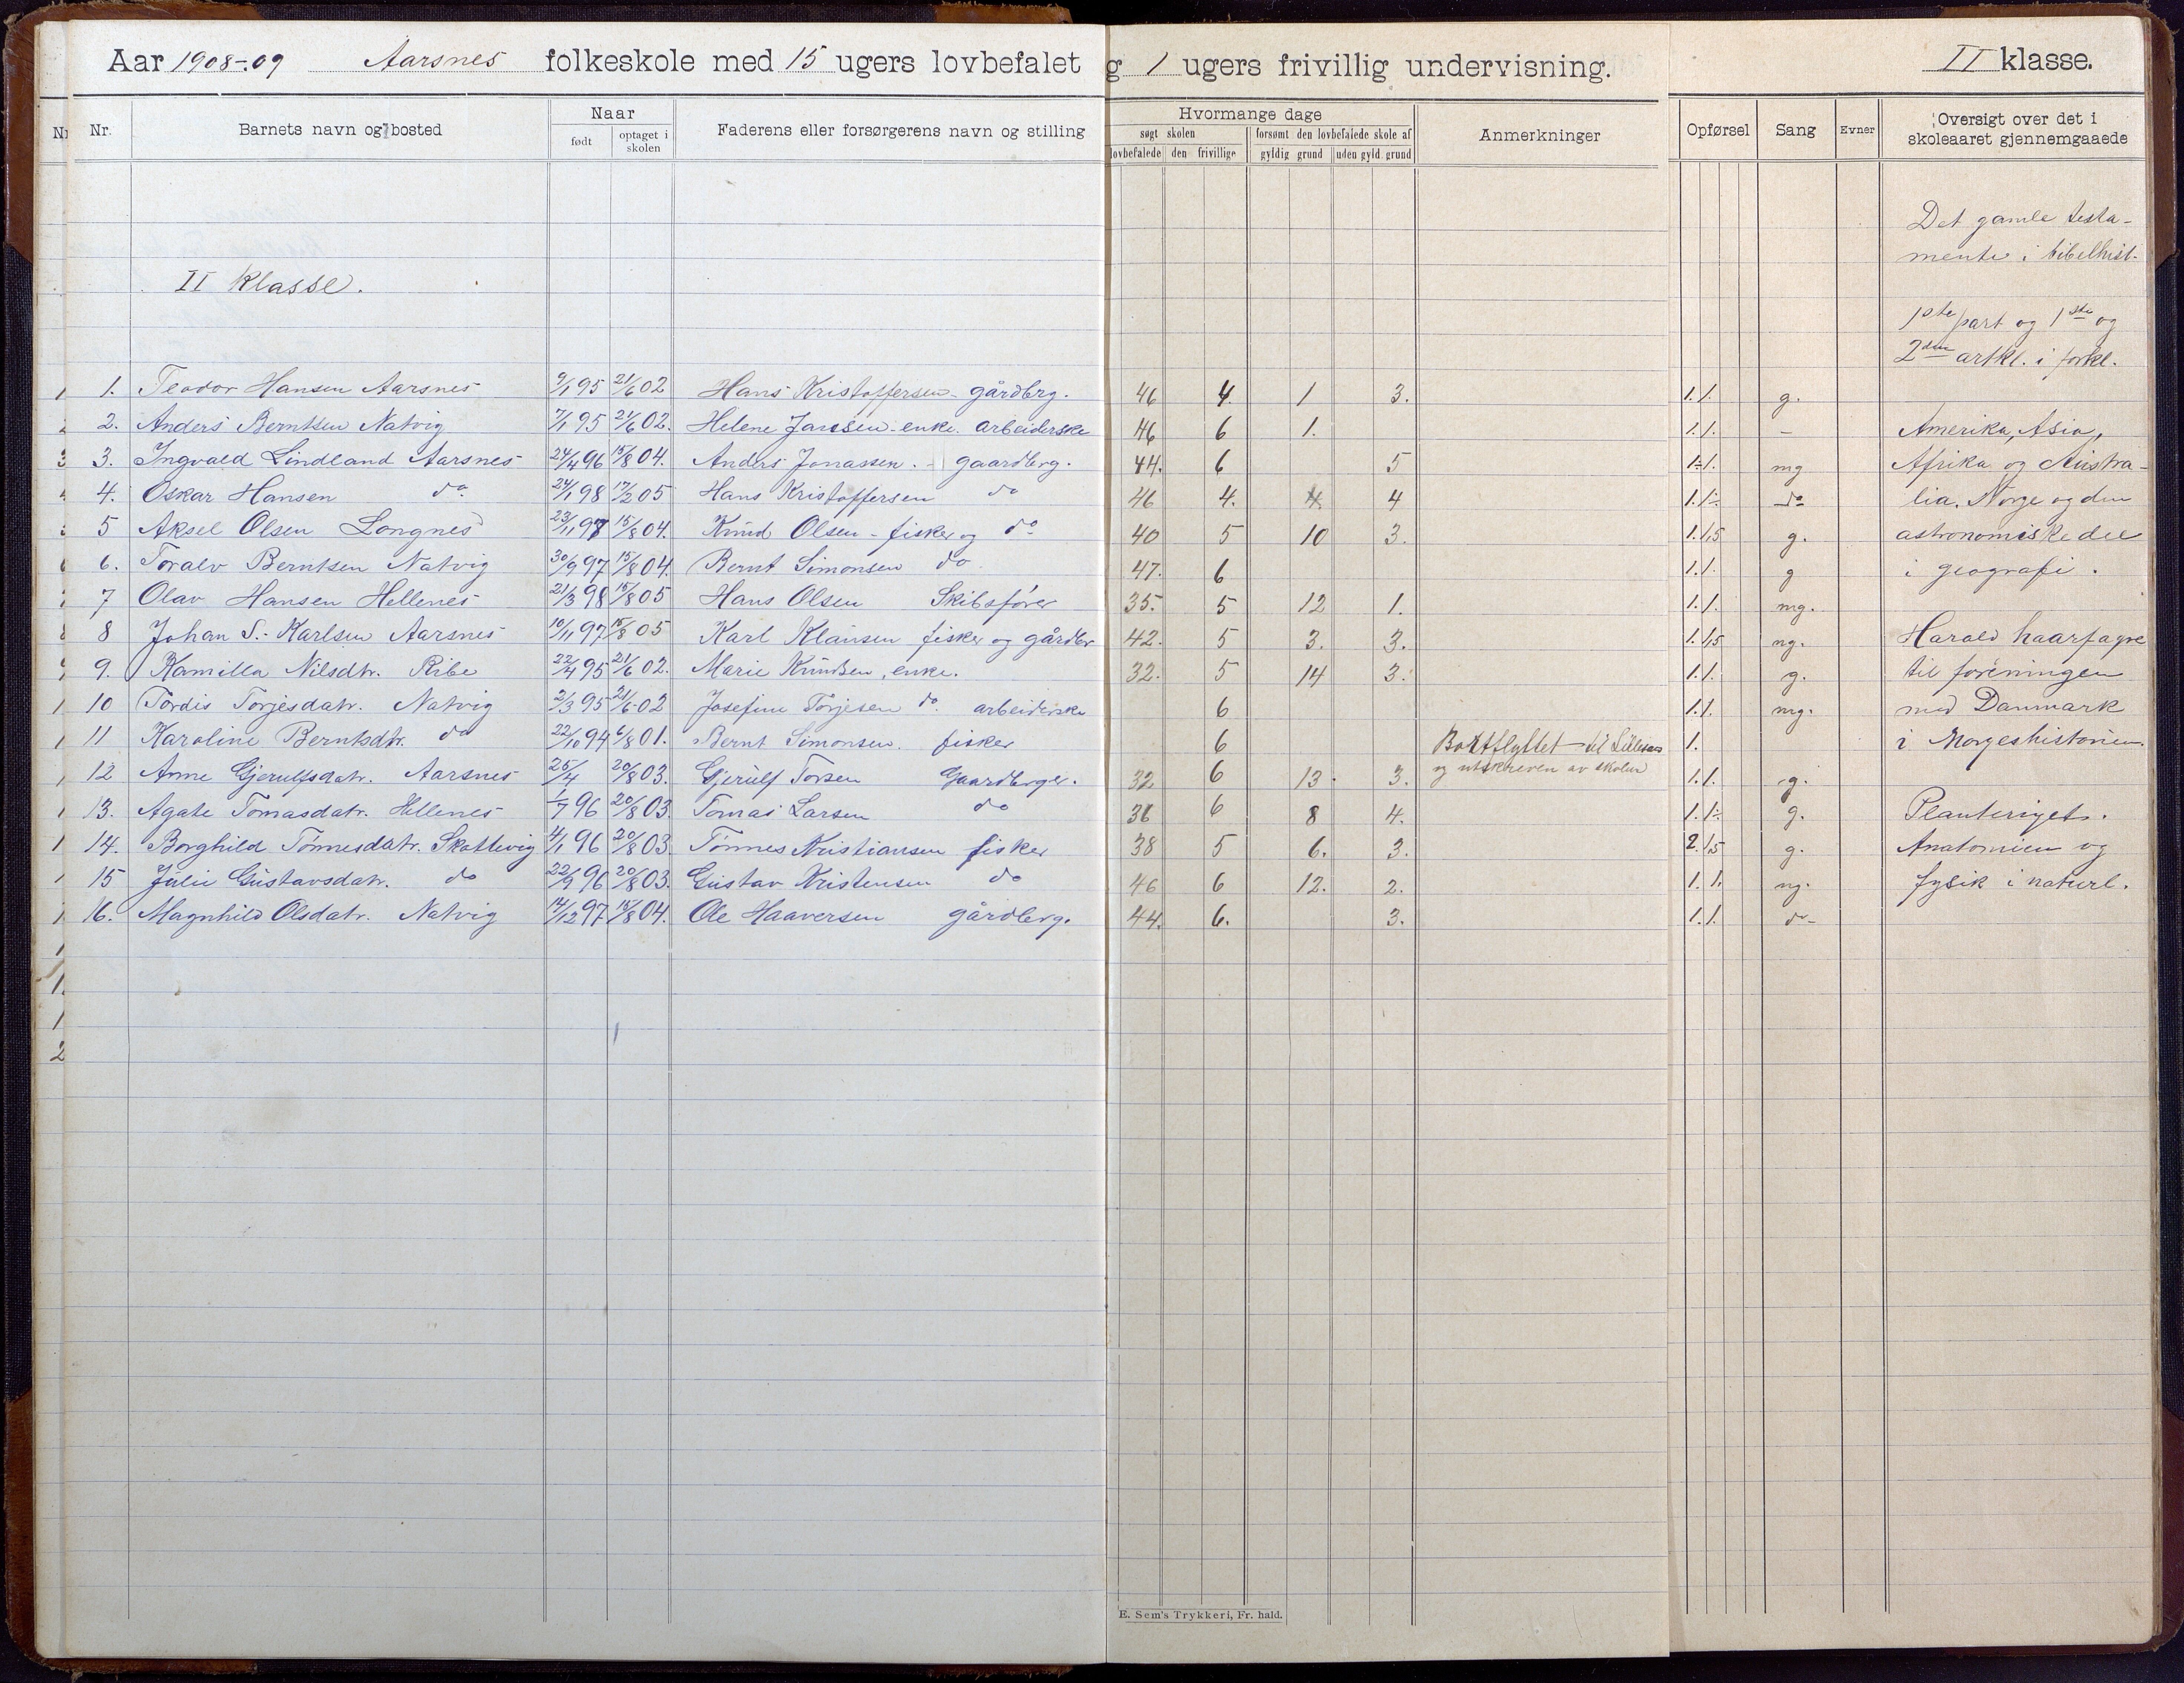 Aar 1908-09 Aarsnes folkeskole med 15 ugers lovbefalet g 1 ugers frivillig undervisning. II klasse.
Nr. Barnets navn og bosted Naar født optaget i skolen Faderens eller forsørgerens navn og stilling Hvormange dage søgt skolen lovbefalede den frivillige forsømt den lovbefalede skole af gyldig grund uden gyld. grund Anmerkninger Opførsel Sang Evner Oversigt over det i skoleaaret gjennemgaaede
Det gamle testa-
mente i bibelhist.
II klasse.
1ste part og 1ste og
2den artkl. i forkl.
1. Teodor Hansen Aarsnes 9/1 95 21/6 02 Hans Kristoffersen - gårdbrg. 46 4. 1 3. 1. 1. g.
2. Anders Berntsen Natvig 7/1 95 21/6 02. Helene Jansen - enke. arbeiderske 46 6 1. 1. 1. - Amerika, Asia,
3. Ingvald Lindland Aarsnes 24/4 96 15/8 04. Anders Jonassen. - gaardbrg. 44. 6 5 1÷ 1. mg Afrika og Austra-
4. Oskar Hansen do 24/1 98 17/2 05 Hans Kristoffersen do 46 4. 4 1. 1÷ do lia. Norge og den
5 Aksel Olsen Longnes 23/11 97 15/8 04. Knud Olsen - fisker og do 40 5 10 3. 1. 1,5 g. astronomiske del
6. Toralv Berntsen Natvig 30/9 97 15/8 04. Bernt Simonsen do 47. 6 1. 1. g i geografi.
7 Olav Hansen Hellenes 21/3 98 15/8 05 Hans Olsen Skibsfører 35. 5 12 1. 1. 1. mg.
8 Johan S. Karlsen Aarsnes 10/11 97 15/8 05 Karl Klausen fisker og gårdbr 42. 5 3. 3. 1. 1,5 ng. Harald haarfagre
9. Kamilla Nilsdtr. Ribe 22/4 95 21/6 02. Marie Knudsen, enke. 32. 5 14 3. 1. 1. g. til foreningen
10 Tordis Torjesdatr. Natvig 2/3 95 21/6 02 Josefine Torjesen do arbeiderske 6 1. 1. mg. med Danmark
11 Karoline Berntsdtr. do 22/10 94 6/8 01. Bernt Simonsen. fisker 6 Bortflyttet til Lillesand 1. i Norgeshistorien.
og utskreven av skolen
12 Anne Gjerulfsdatr. Aarsnes 25/4 20/8 03. Gjerulf Torsen Gaardbrger. 32 6 13. 3. 1. 1. g.
13. Agate Tomasdatr. Hellenes 1/7 96 20/8 03 Tomas Larsen do 36 6 8 4. 1. 1÷ g. Planteriget.
14. Borghild Tønnesdatr. Skottevig 4/1 96 20/8 03 Tønnes Kristiansen fisker 38 5 6. 3. 2. 1,5 g. Anatomien og
15 Julie Gustavsdatr. do 22/9 96 20/8 03. Gustav Kristensen do 46 6 12. 2. 1. 1. ng. fysik i naturl.
16. Magnhild Olsdatr. Natvig 14/12 97 15/8 04. Ole Haaversen gårdbrg. 44. 6. 3. 1. 1. do
E. Sem's Trykkeri, Fr. hald.